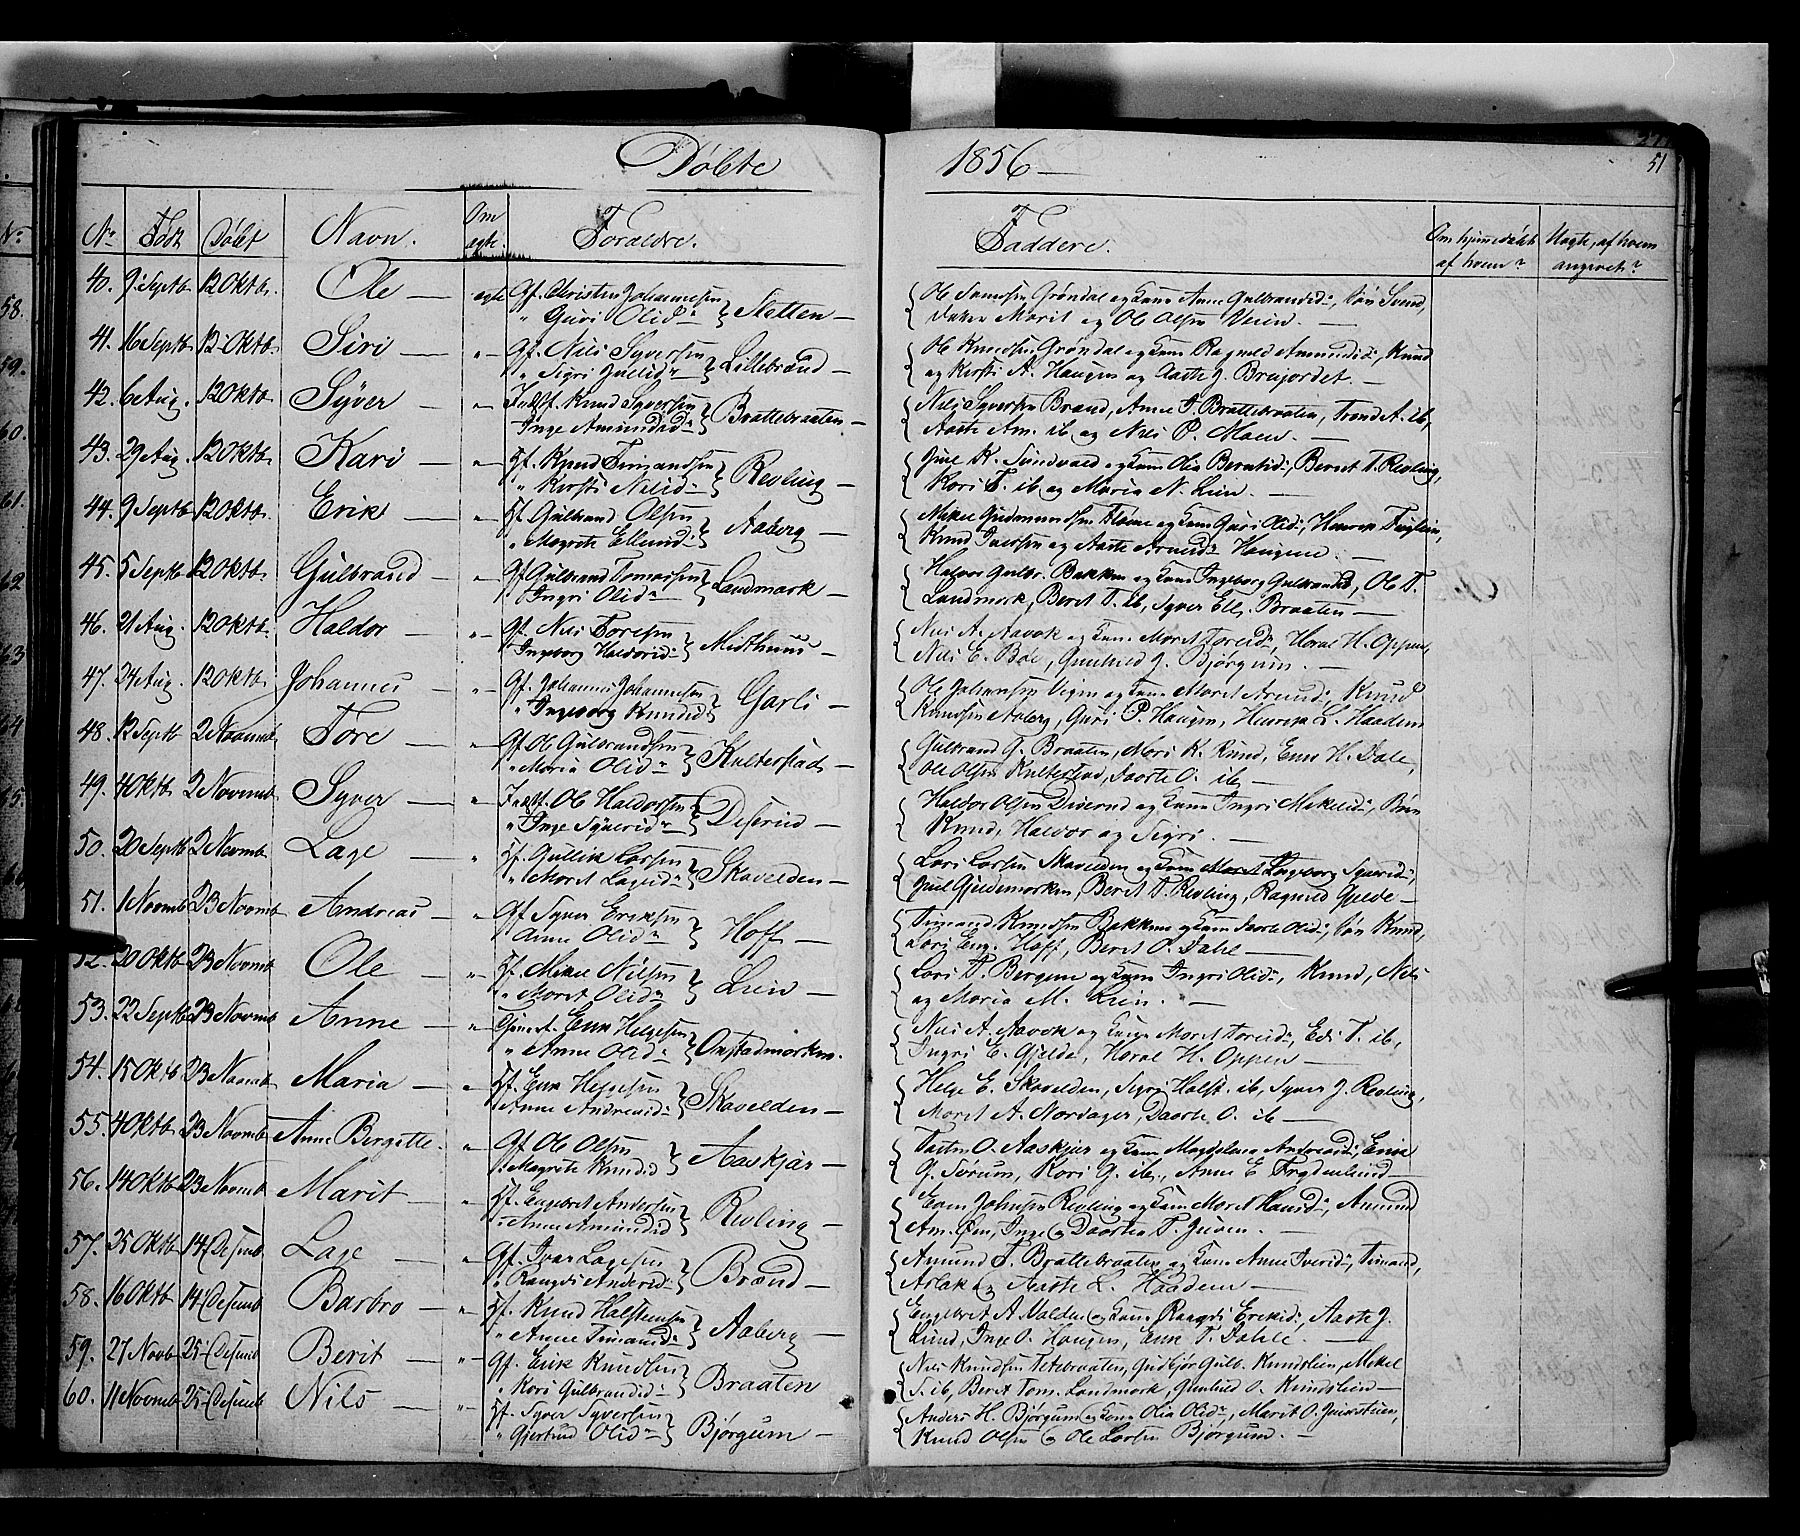 Døbte 1856
51
No Født Døbt Navn. Om ægte. Forældre. Faddere. Om hjemmedøbt af hvem? Uægte, af hvem angivet?
40. 9 Septb 12 Oktb. Ole ægte Gf. Christen Johannesen
" Guri Olsd Sletten
Ole Grøndal og Kone Anne Gulbrandsd:,
Marit og Ole Olsen Veien.
41. 16 Septb. 12 Oktb. Siri " Gf. Nils Syversen
" Sigri Lillebrænd
Ole Knudsen Grøndal og Kone Ragnild Amundsd:, Knud
og Kirsti A. Haugen og Aaste J. Brujordet.
42. 6 Aug. 12 Oktb. Syver " Indst. Knud Syversen
Inge Amundsd Brattebraaten
Nils Syversen Brænd, Anne T. Brattebraaten, Trond A. ib,
Aaste Am. ib og Nils P. Moen.
43. 29 Aug. 12 Oktb. Kari " Gf. Knud Timandsen
" Kirsti Nilsd: Revling
Juul K. Sundvold og Kone Olia Berntsd:, Bernt T. Revling,
Kari T. ib og Maria N. Lien.
44. 9 Septb 12 Oktb. Erik " Gf. Gulbrand Olsen
" Magrete Ellend: Aaberg
Mikel Gudmundsen og Kone Guri Olsd:, Henrik
Knud Iversen og Aaste Haugene
45. 5 Septb 12 Oktb. Gulbrand " Gf. Gulbrand Tomassen
Ingri Olsd Landmark
Haldor Gulbr. Bakken og Kone Ingeborg Gulbrandsd, Ole T.
Landmark, Berit T. ib, Syver Ell. Braaten
46. 21 Aug. 12 Oktb. Haldor " Gf. Nils Toresen
Ingeborg Haldorsd: Midthuus
Nils A. Aavok og Kone Marit Toresd:, Haral H. Oppen,
Nils E. Boe, Gunild J. Bjørgum.
47. 24 Aug. 12 Oktb. Johannes " Gf. Johannes Johannesen
" Ingeborg Knudsd Garli
Ole Johansen Vigen og Kone Marit Knud
Knudsen Aaberg, Guri P. Haugen, Henrik L. Haadem
48. 12 Septb 2 Novemb. Tore " Gf. Ole Gulbrandsen
" Maria Olsd Kulterstad
Gulbrand G. Braaten, Mari K. Rund, Enn H. Dale,
Ole Olsen Kulterstad, Daarte O. ib
49. 4 Oktb 2 Novemb Syver " Indst. Ole Haldorsen
" Inge Syversd: Deserud
Haldor Olsen Diserud og Kone Ingri Mikelsd:,
Knud, Haldor og Sigri.
50. 20 Septb 2 Novemb. Lage " Gf. Gullik Larsen
" Marit Lagesd: Skavelden
Lars Larsen Skavelden og Kone Ingeborg Syversd:,
Juul Gjeldemarken, Berit T. Revling, Ragnild Gjelde
51. 1 Novemb 23 Novemb Andreas " Gf. Syver Eriksen
Anne Olsd: Hoff
Timand Knudsen Bakken og Kone Daarte Olsd:, Søn Knud,
Lars Eng. Hoff, Berit O. Dahl
52. 20 Oktb 23 Novemb Ole " Gf. Mikel Nilsen
" Marit Olsd Lien
Lars T. Bergene og Kone Ingri Olsd:, Knud, Nils
og Maria M. Lien.
53. 22 Septb 23 Novemb Anne " Enn Helgesen
" Anne Olsd: Onstadmarken.
Nils A. Aavok og Kone Marit Toresd:, T. ib,
Ingri E. Gjelde, Haral H. Oppen
54. 15 Oktb 23 Novemb Maria " Gf. Enn Helgesen
Anne Andresd: Skavelden
Helge E. Skavelden, Sigri Halst. ib, Syver J. Revling,
Marit A. Nordager, Daarte O. ib
55. 4 Oktb 23 Novemb Anne Birgitte. " Gf. Ole Olsen
" Magrete Knudsd Aaskjær
O. Aaskjær og Kone Magdelena Andersd:, Enn
G. Sørum, Kari G. ib, Anne E. Frydenlund
56. 14 Oktb 23 Novemb Marit " Gf. Engebret Andersen
" Anne Amundsd Revling
Even Johnsen Revling og Kone Marit Hansd:, Amund
Am. Øen, Inge og Daartea T.
57. 25 Oktb 14 Desemb. Lage Gf. Ivar Lagesen
" Rangdi Andersd: Brænd
Amund T. Brattebraaten og Kone Anne Iversd:, Timand,
Aslak og Aaste L. Haadem
58. 16 Oktb 14 Desemb Barbro " Gf. Knud Halstensen
" Anne Timandsd: Aaberg
Engebret A. Valden og Kone Rangdi Eriksd:, Aaste J.
Rund, Inge O. Haugen, Enn T. Dahle.
59. 27 Novb 25 Desemb Berit " Gf. Erik Knudsen
" Kari Gulbrandsd: Braaten
Nils Knudsen Tetebraaten, Gudbjør Gulb. Knudslien, Mikel
S. ib, Berit Tom. Landmark, Gunild O. Knudslien
60. 11 Novemb 25 Desemb Nils " Gf. Syver Syversen
" Gjertrud Olsd: Bjørgum
Anders H. Bjørgum og Kone Olia Olsd:, Marit O.
Knud Olsen og Ole Larsen Bjørgum.